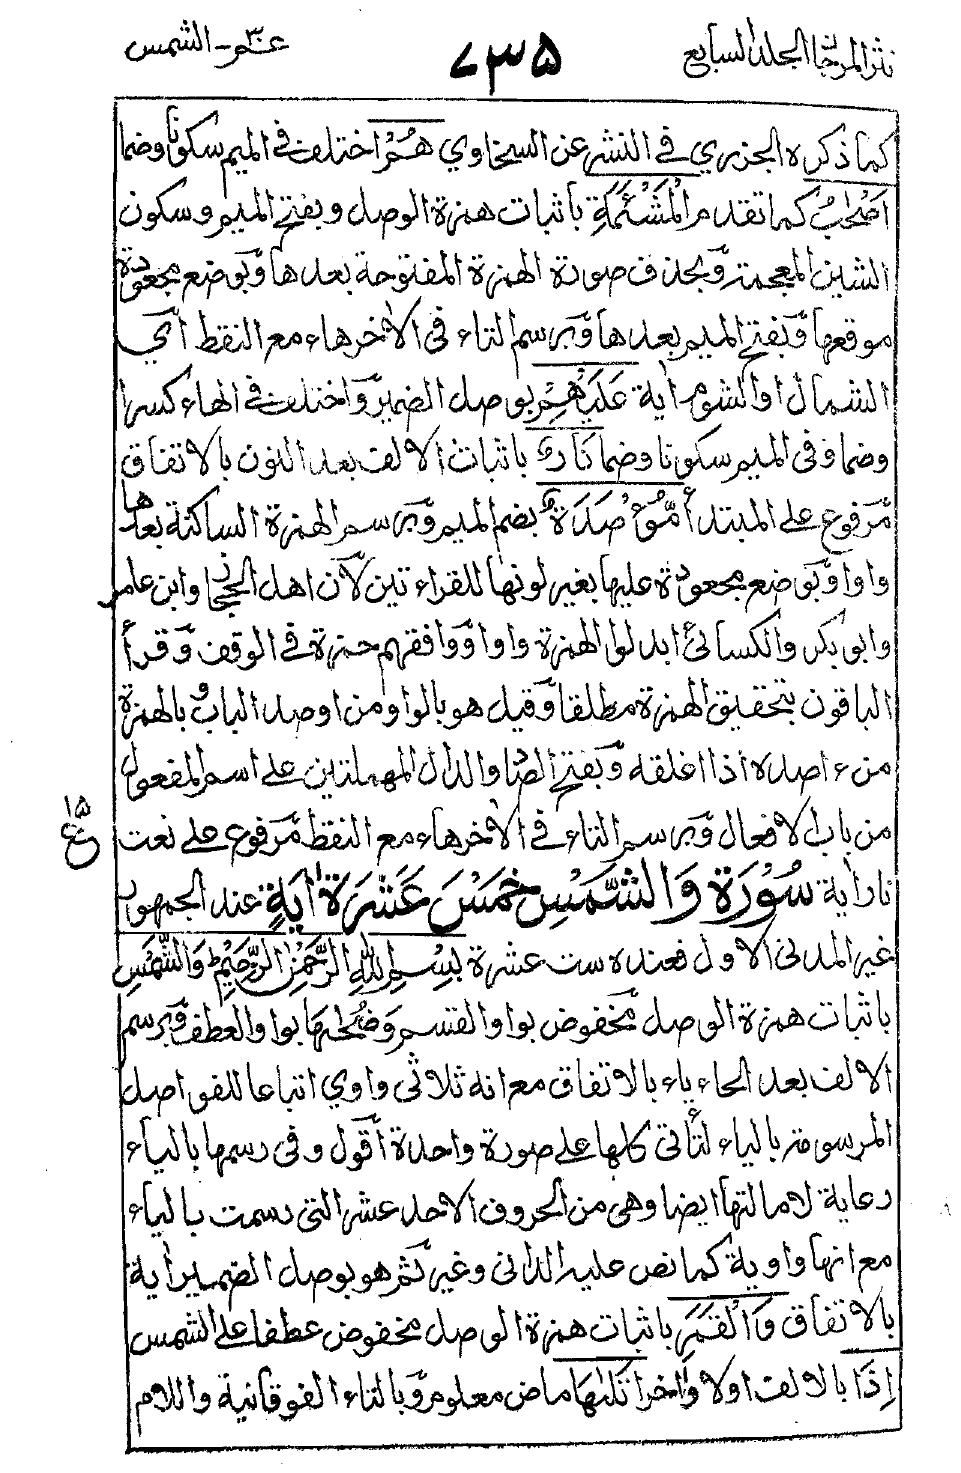 نثر المرجان الجلد السابع
٧٣٥
عم ٣٠ - الشمس
كما ذكره الجزري في النشر عن السخاوي هُمْ اختلف في الميم سكونا وضما
اَصْحٰبُ كما تقدم الْمَشْئَمَةِ باثبات همزة الوصل وبفتح الميم وسكون
الشين المعجمة وبحذف صورة الهمزة المفتوحة بعدها وبوضع مجعودة
موقعها وبفتح الميم بعدها وبرسم التاء في الاٰخر هاء مع النقط أي
الشمال او الشوم اٰية عَلَيْهِمْ بوصل الضمير واختلف في الهاء كسرا
وضما وفي الميم سكونا وضما نَارٌ باثبات الالف بعد النون بالاتفاق
مرفوع على المبتدأ مُّؤْصَدَةٌ بضم الميم وبرسم الهمزة الساكنة بعدها
واوا وبوضع مجعودة عليها بغير لونها للقراءتين لأن اهل الحجاز وابن عامر
وابو بكر والكسائي أبدلوا الهمزة واوا ووافقهم حمزة في الوقف وقرأ
الباقون بتحقيق الهمزة مطلقا وقيل هو بالواو من اوصد الباب وبالهمزة
من ءاصده اذا اغلقه وبفتح الصاد والدال المهملتين على اسم المفعول
من باب الافعال وبرسم التاء في الاٰخر هاء مع النقط مرفوع على نعت
١٥
ع
نار اٰية سُوْرَةُ وَالشَّمْسِ خَمْسَ عَشَرَةَ اٰيَةٍ عند الجمهور
غير المدني الاول فعنده ست عشرة بِسْمِ اللّٰهِ الرَّحْمٰنِ الرَّحِيْمِ وَالشَّمْسِ
باثبات همزة الوصل مخفوض بواو القسم وَضُحٰىهَا بواو العطف وبرسم
الالف بعد الحاء ياء بالاتفاق مع انه ثلاثي واوي اتباعا للفواصل
المرسومة بالياء لتأتي كلها على صورة واحدة أقول وفي رسمها بالياء
رعاية لامالتها ايضا وهي من الحروف الاحد عشر التي رسمت بالياء
مع انها واوية كما نص عليه الداني وغيره ثم هو بوصل الضمير اٰية
بالاتفاق وَالْقَمَرِ باثبات همزة الوصل مخفوض عطفا على الشمس
اِذَا بالالف اولا واٰخرا تَلٰىهَا ماض معلوم وبالتاء الفوقانية واللام